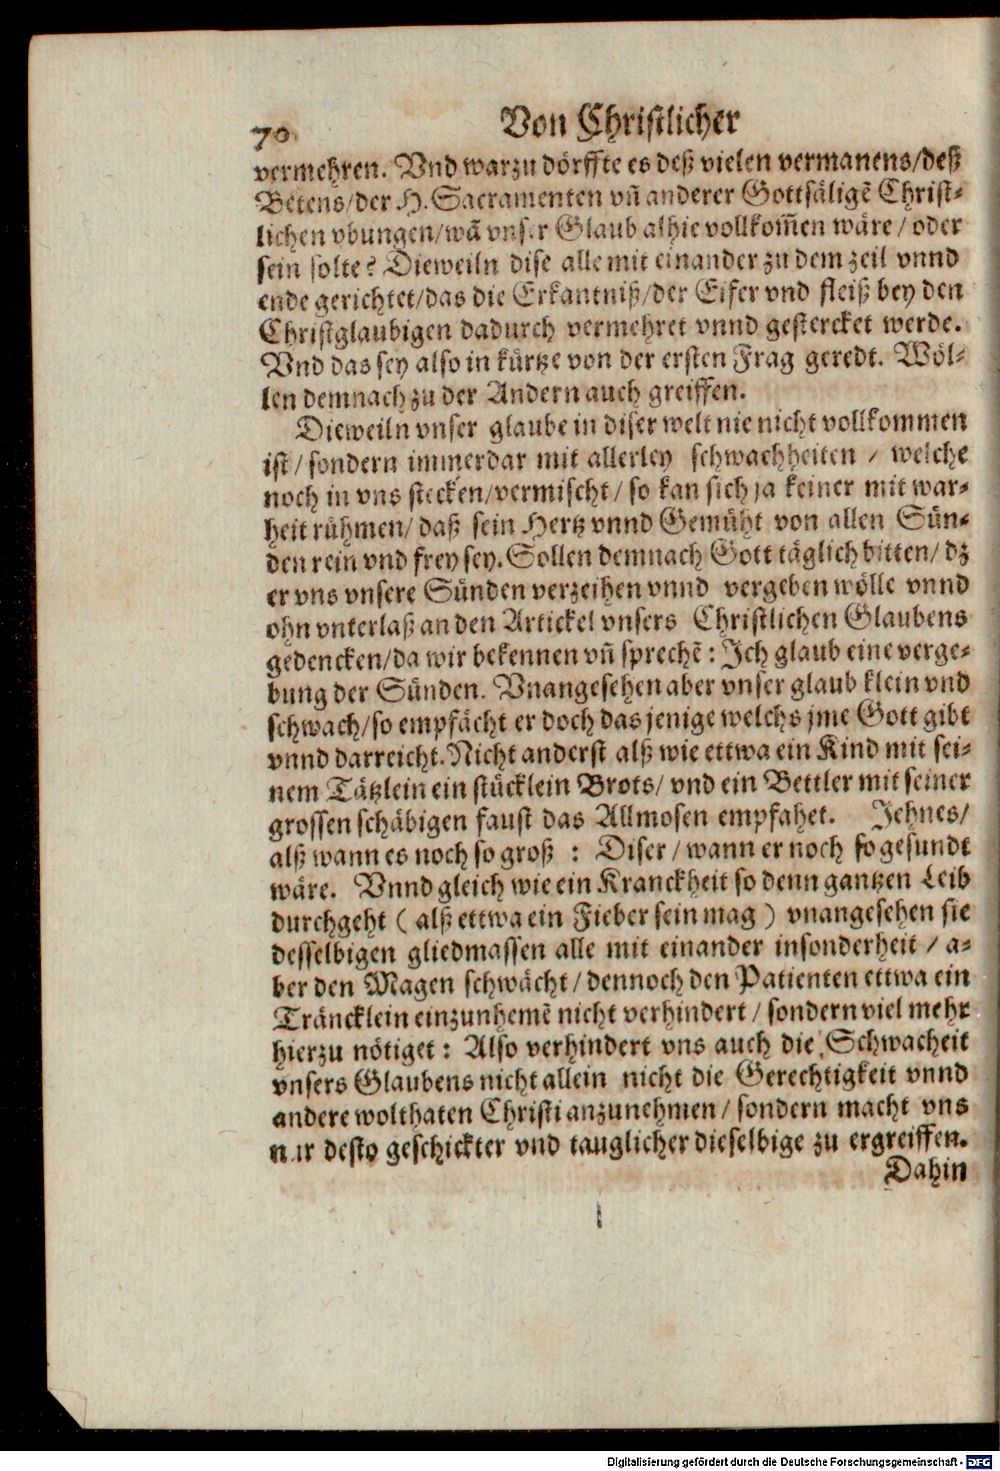 70 Von Christlicher
vermehren. Vnd warzu dörffte es deß vielen vermanens/deß
Betens/der H. Sacramenten vñ anderer Gottsäligẽ Christ-
lichen vbungen/wã vnser Glaub alhie vollkom̃en wäre/oder
sein solte? Dieweiln dise alle mit einander zu dem zeil vnnd
ende gerichtet/das die Erkantniß/der Eifer vnd fleiß bey den
Christglaubigen dadurch vermehret vnnd gestercket werde.
Vnd das sey also in kürtze von der ersten Frag geredt. Wöl-
len demnach zu der Andern auch greiffen.
Dieweiln vnser glaube in diser welt nie nicht vollkommen
ist/sondern immerdar mit allerley schwachheiten/welche
noch in vns stecken/vermischt/so kan sich ja keiner mit war-
heit rühmen/daß sein Hertz vnnd Gemüht von allen Sün-
den rein vnd frey sey. Sollen demnach Gott täglich bitten/dz
er vns vnsere Sünden verzeihen vnnd vergeben wölle vnnd
ohn vnterlaß an den Artickel vnsers Christlichen Glaubens
gedencken/da wir bekennen vñ sprechẽ: Ich glaub eine verge-
bung der Sünden. Vnangesehen aber vnser glaub klein vnd
schwach/so empfächt er doch das jenige welchs jme Gott gibt
vnnd darreicht. Nicht anderst alß wie ettwa ein Kind mit sei-
nem Tätzlein ein stücklein Brots/vnd ein Bettler mit seiner
grossen schäbigen faust das Allmosen empfahet. Jehnes/
alß wann es noch so groß : Diser/wann er noch so gesundt
wäre. Vnnd gleich wie ein Kranckheit so denn gantzen Leib
durchgeht (alß ettwa ein Fieber sein mag) vnangesehen sie
desselbigen gliedmassen alle mit einander insonderheit/a-
ber den Magen schwächt/dennoch den Patienten ettwa ein
Träncklein einzunhemẽ nicht verhindert/sondern viel mehr
hierzu nötiget: Also verhindert vns auch die Schwacheit
vnsers Glaubens nicht allein nicht die Gerechtigkeit vnnd
andere wolthaten Christi anzunehmen/sondern macht vns
nur desto geschickter vnd tauglicher dieselbige zu ergreiffen.
Dahin
Digitalisierung gefördert durch die Deutsche Forschungsgemeinschaft - DFG